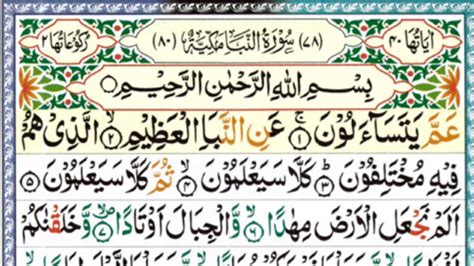 اٰیَاتُهَا ۴۰ (۷۸) سُوْرَةُ النَّبَاِ مَكِّيَّةٌ (۸۰) رُكُوْعَاتُهَا ۲
بِسْمِ اللهِ الرَّحْمٰنِ الرَّحِيْمِ
عَمَّ يَتَسَآءَلُوْنَ ۝۱ عَنِ النَّبَاِ الْعَظِيْمِ ۝۲ الَّذِيْ هُمْ
فِيْهِ مُخْتَلِفُوْنَ ۝۳ كَلَّا سَيَعْلَمُوْنَ ۝۴ ثُمَّ كَلَّا سَيَعْلَمُوْنَ ۝۵
اَلَمْ نَجْعَلِ الْاَرْضَ مِهٰدًا ۝۶ وَّالْجِبَالَ اَوْتَادًا ۝۷ وَّخَلَقْنٰكُمْ